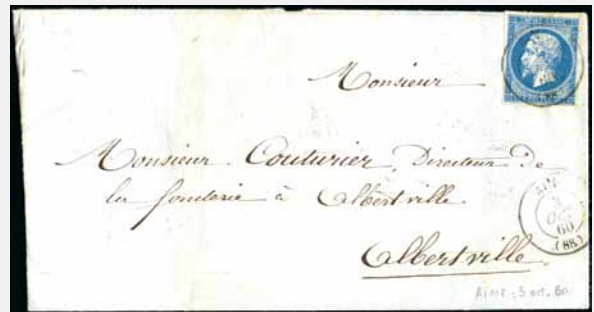 EMPIRE FRANC
Monsieur
Monsieur Couturier, Directeur de
la fonderie à Albertville.
Albertville.
AIM
3
OCT
60
(88)
AIME - 3 oct. 60